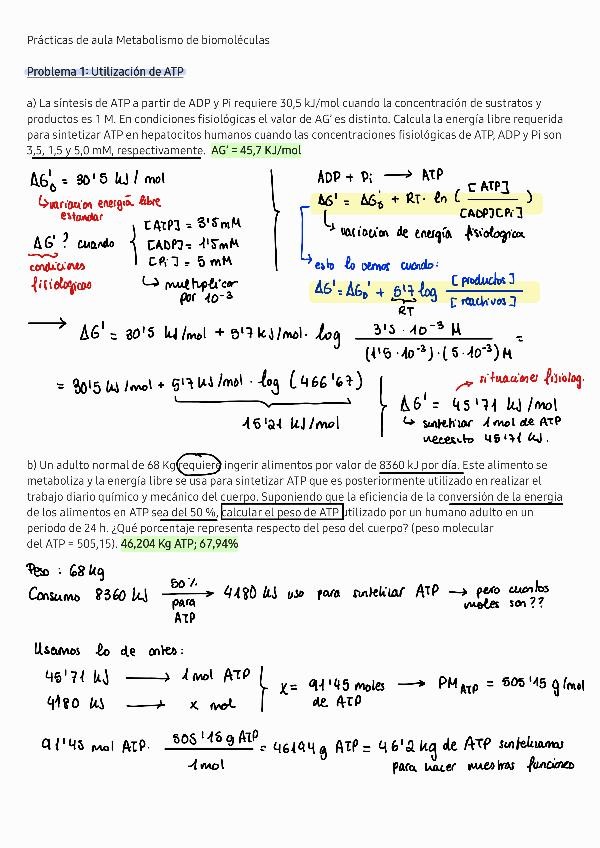 Prácticas de aula Metabolismo de biomoléculas
Problema 1: Utilización de ATP
a) La síntesis de ATP a partir de ADP y Pi requiere 30,5 kJ/mol cuando la concentración de sustratos y
productos es 1 M. En condiciones fisiológicas el valor de AG' es distinto. Calcula la energía libre requerida
para sintetizar ATP en hepatocitos humanos cuando las concentraciones fisiológicas de ATP, ADP y Pi son
3,5, 1,5 y 5,0 mM, respectivamente. AG' = 45,7 KJ/mol
ΔG'₀ = 30'5 kJ/mol
↳ variacion energía libre
estandar
ΔG' ? cuando
condiciones
fisiologicas
[ATP] = 3'5 mM
[ADP] = 1'5 mM
[Pi] = 5 mM
↳ multiplicar
por 10⁻³
ADP + Pi → ATP
ΔG' = ΔG'₀ + RT · ln ( [ATP] / [ADP][Pi] )
↳ variacion de energía fisiologica
esto lo vemos cuando:
ΔG' = ΔG₀' + 5'7 log [productos] / [reactivos]
RT
→ ΔG' = 30'5 kJ/mol + 5'7 kJ/mol · log 3'5 · 10⁻³ M / (1'5 · 10⁻³) · (5 · 10⁻³) M =
= 30'5 kJ/mol + 5'7 kJ/mol · log (466'67)
15'21 kJ/mol
situaciones fisiolog.
ΔG' = 45'71 kJ/mol
↳ sintetizar 1 mol de ATP
necesito 45'71 kJ.
b) Un adulto normal de 68 Kg requiere ingerir alimentos por valor de 8360 kJ por día. Este alimento se
metaboliza y la energía libre se usa para sintetizar ATP que es posteriormente utilizado en realizar el
trabajo diario químico y mecánico del cuerpo. Suponiendo que la eficiencia de la conversión de la energia
de los alimentos en ATP sea del 50 %, calcular el peso de ATP utilizado por un humano adulto en un
periodo de 24 h. ¿Qué porcentaje representa respecto del peso del cuerpo? (peso molecular
del ATP = 505,15). 46,204 Kg ATP; 67,94%
Peso : 68 kg
Consumo 8360 kJ 50% para ATP → 4180 kJ uso para sintetizar ATP → pero cuantos
moles son??
Usamos lo de antes:
45'71 kJ → 1 mol ATP
4180 kJ → x mol
X = 91'45 moles → PM ATP = 505'15 g/mol
de ATP
91'45 mol ATP · 505'15 g ATP / 1 mol = 46194 g ATP = 46'2 kg de ATP sintetizamos
para hacer nuestras funciones